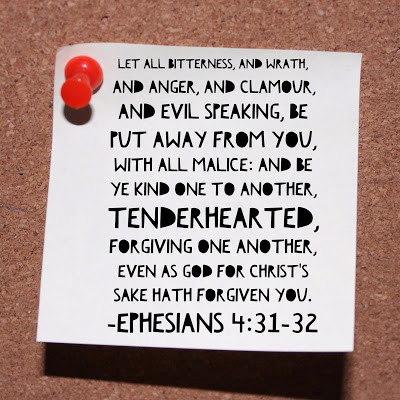 LET ALL BITTERNESS, AND WRATH,
AND ANGER, AND CLAMOUR,
AND EVIL SPEAKING, BE
PUT AWAY FROM YOU,
WITH ALL MALICE: AND BE
YE KIND ONE TO ANOTHER,
TENDERHEARTED,
FORGIVING ONE ANOTHER,
EVEN AS GOD FOR CHRIST'S
SAKE HATH FORGIVEN YOU.
-EPHESIANS 4:31-32